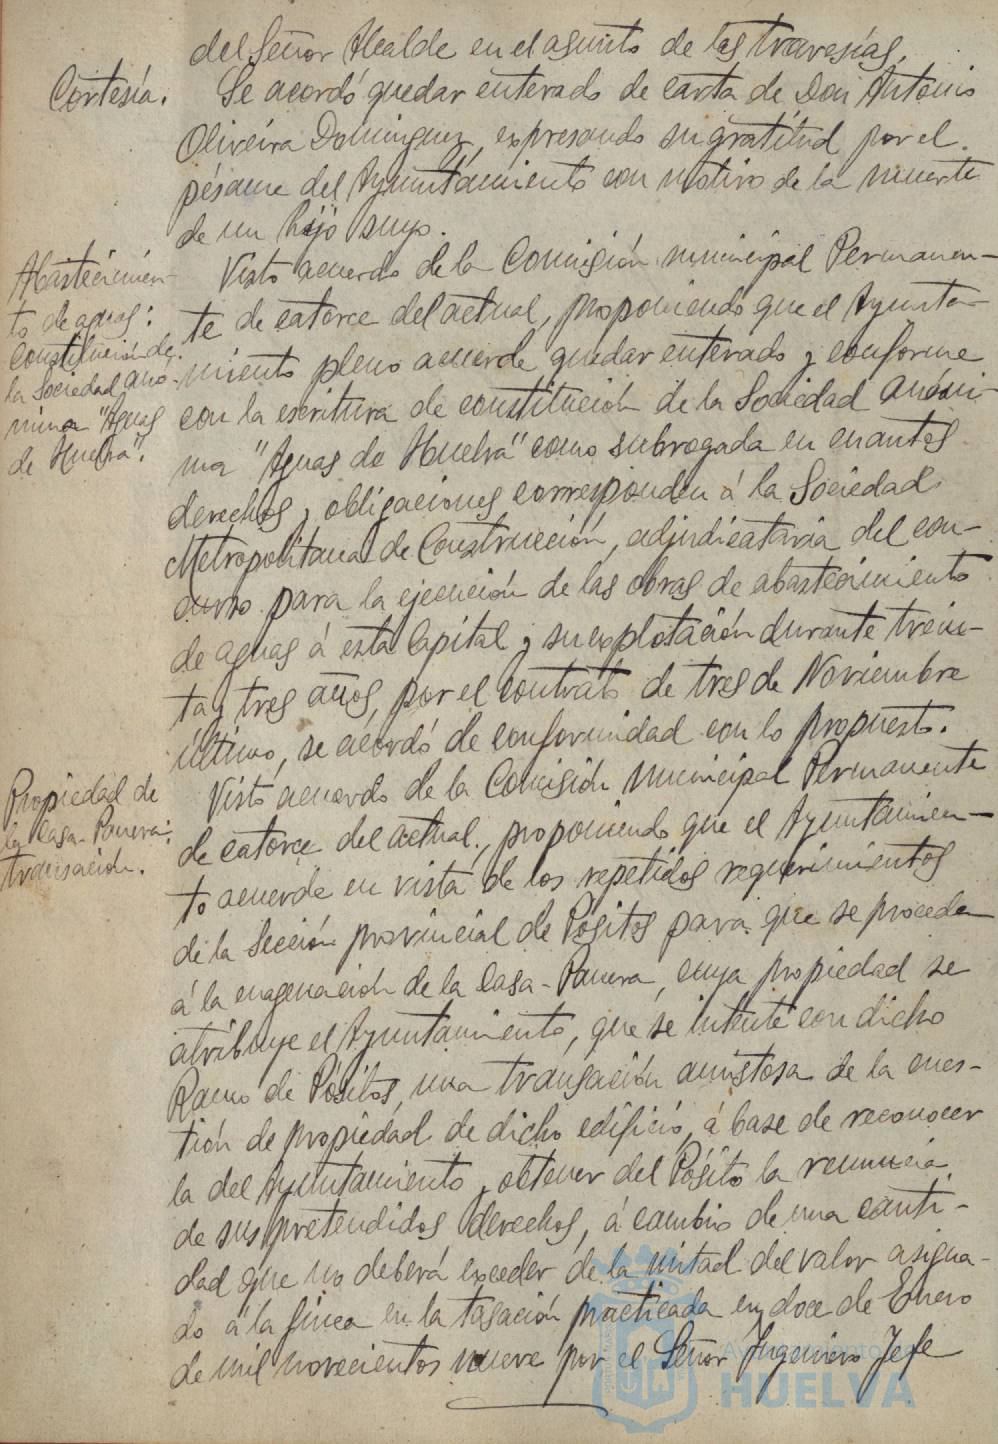 del Señor Alcalde en el asunto de las travesías.
Cortesía.
Se acordó quedar enterado de carta de Don Antonio
Oliveira Dominguez, expresando su gratitud por el
pésame del Ayuntamiento con motivo de la muerte
de un hijo suyo.
Abastecimien-
to de aguas:
constitución de
la Sociedad anó-
nima "Aguas
de Huelva".
Visto acuerdo de la Comisión municipal Permanen-
te de catorce del actual, proponiendo que el Ayunta-
miento pleno acuerde quedar enterado y conforme
con la escritura de constitución de la Sociedad anóni-
ma "Aguas de Huelva" como subrogada en cuantos
derechos y obligaciones corresponden á la Sociedad
Metropolitana de Construcción, adjudicataria del con-
curso para la ejecución de las obras de abastecimiento
de aguas á esta Capital y su explotación durante trein-
ta y tres años, por el contrato de tres de Noviembre
último, se acordó de conformidad con lo propuesto.
Propiedad de
la Casa-Panera:
transación.
Visto acuerdo de la Comisión municipal Permanente
de catorce del actual, proponiendo que el Ayuntamien-
to acuerde en vista de los repetidos requerimientos
de la Sección provincial de Pósitos para que se proceda
á la enagenación de la Casa-Panera, cuya propiedad se
atribuye el Ayuntamiento, que se intente con dicho
Ramo de Pósitos, una transación amistosa de la cues-
tión de propiedad de dicho edificio, á base de reconocer
la del Ayuntamiento y obtener del Pósito la renuncia
de sus pretendidos derechos, á cambio de una canti-
dad que no deberá exceder de la mitad del valor asigna-
do á la finca en la tasación practicada en doce de Enero
de mil novecientos nueve por el Señor Ingeniero Jefe
Ayuntamiento de
HUELVA